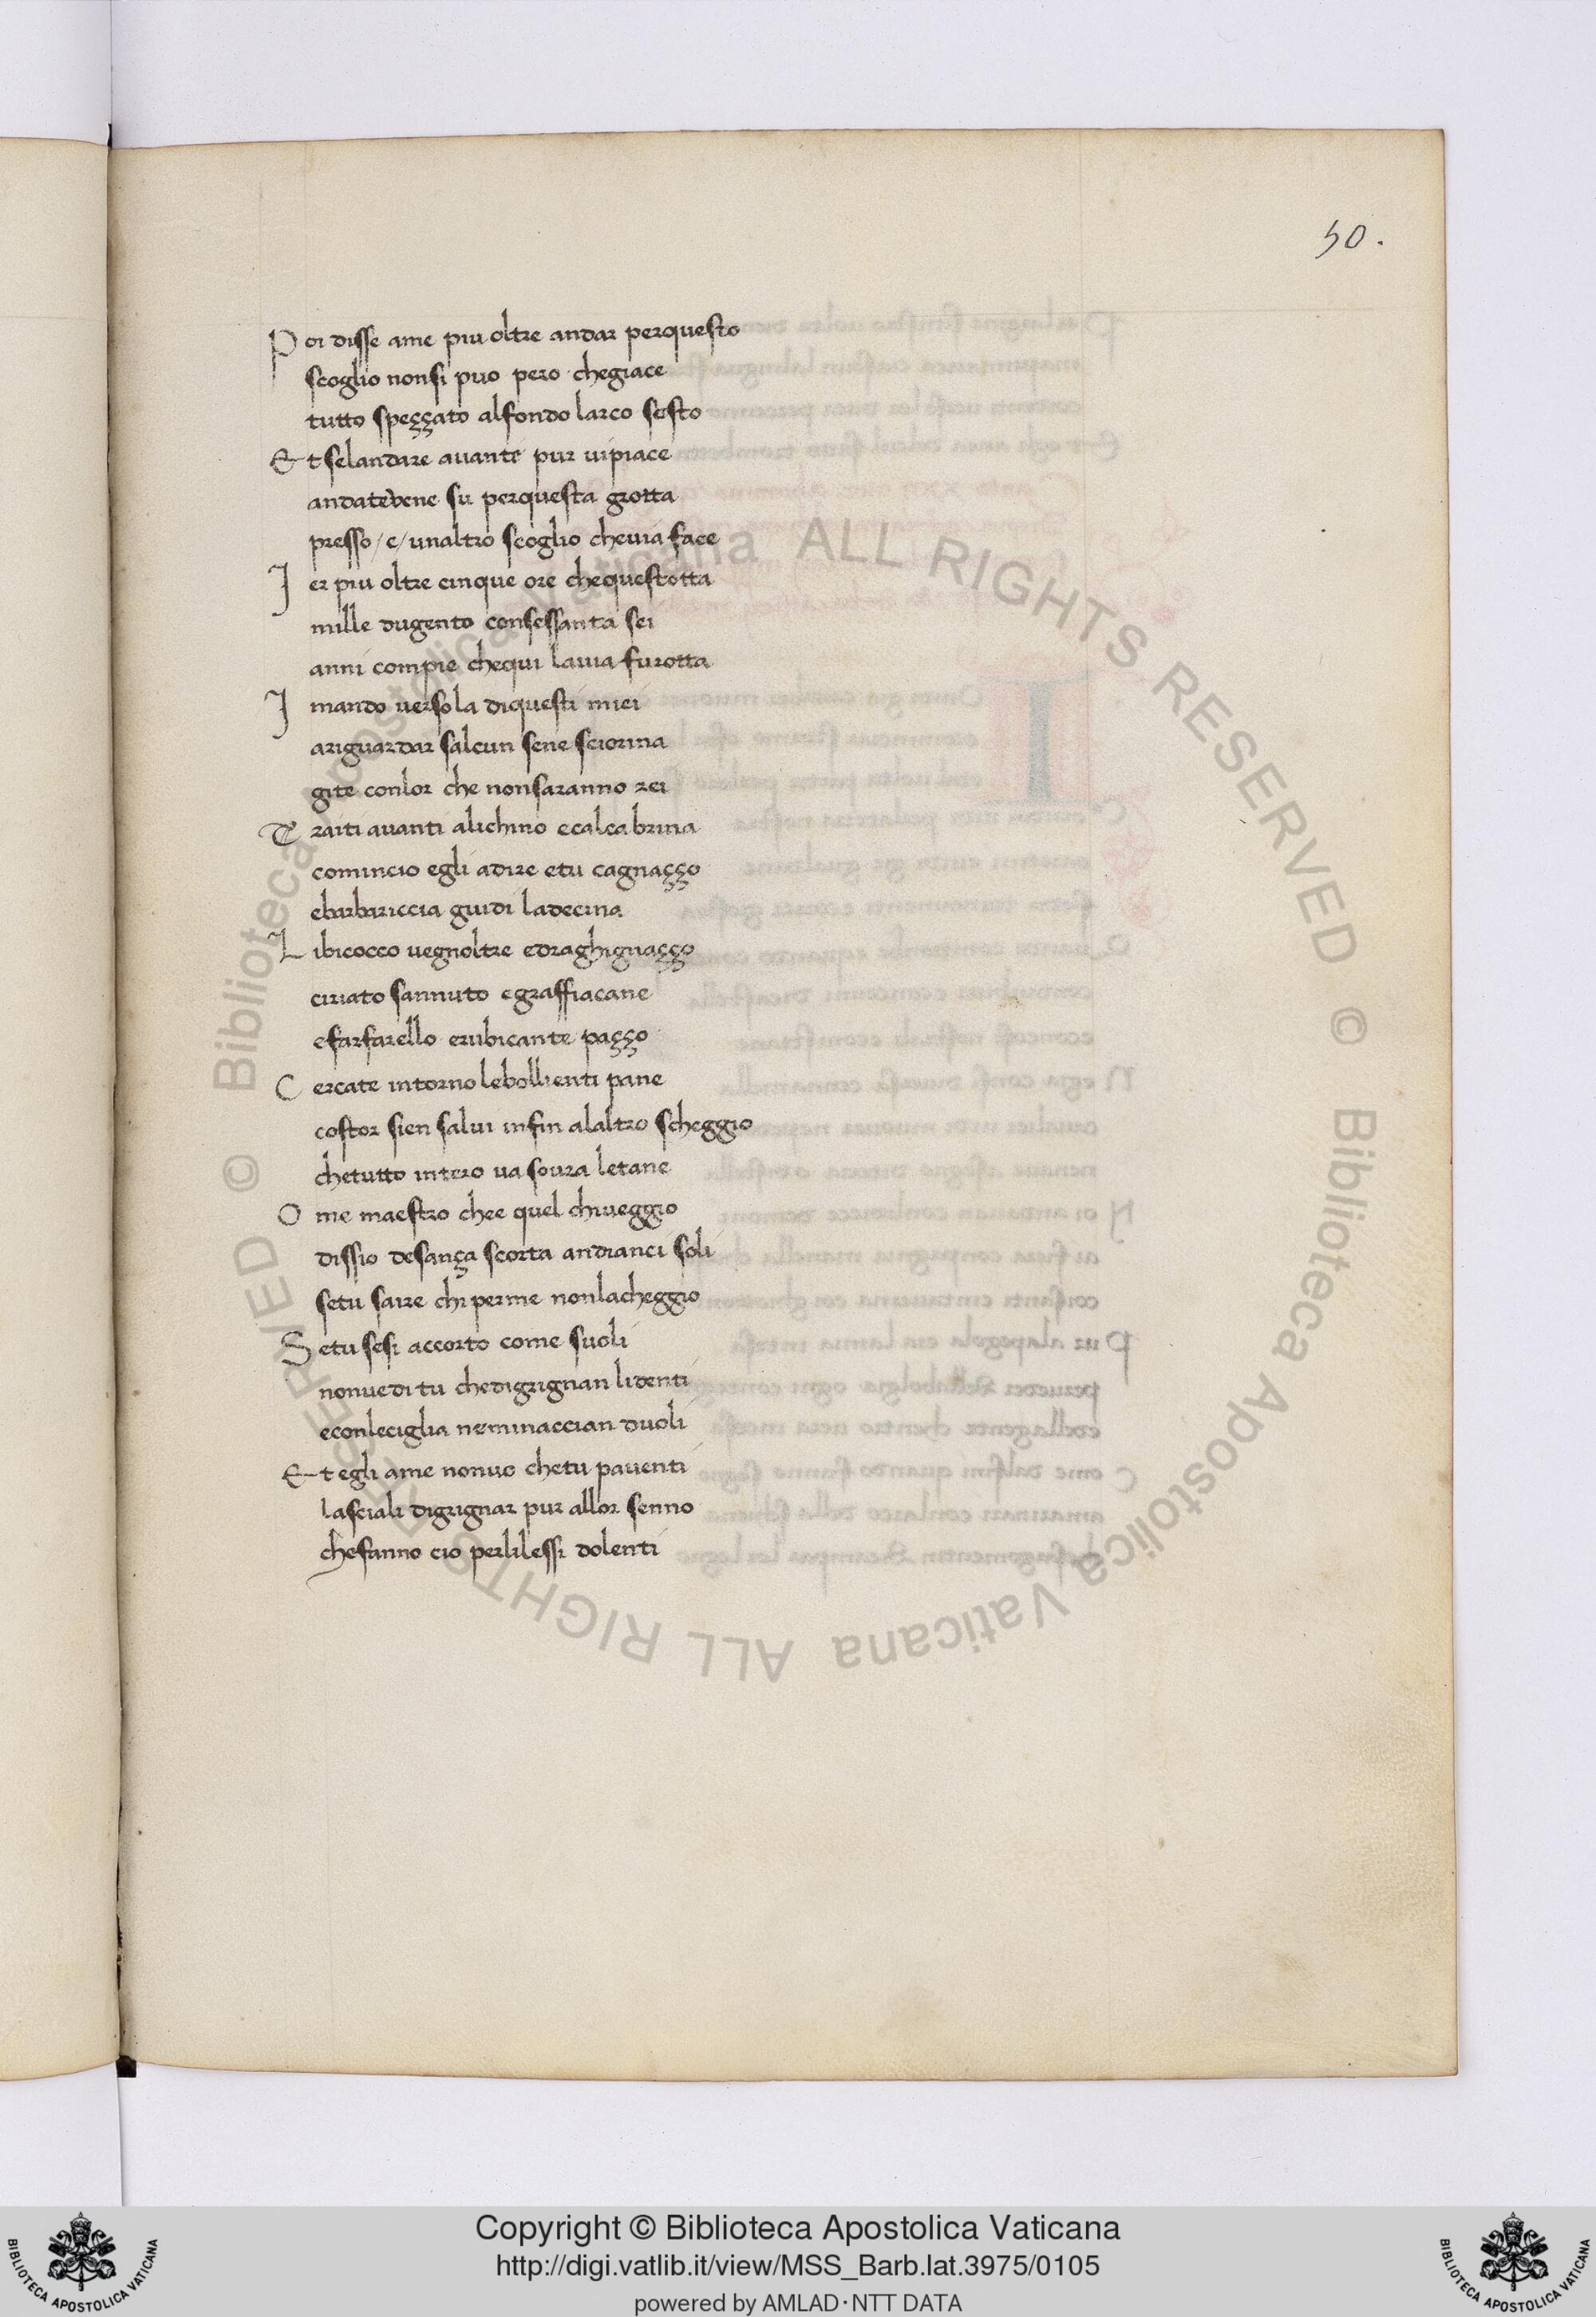 50.
Poi disse ame piu oltre andar perquesto
scoglio nonsi puo pero chegiace
tutto speççato alfondo larco sesto
Et selandare auante pur uipiace
andatevene su perquesta grotta
presso/e/unaltro scoglio cheuia face
Ier piu oltre cinque ore chequestotta
mille dugento consessanta sei
anni compie chequi lauia furotta
I mando uersola diquesti miei
ariguardar salcun sene sciorina
gite conlor che nonsaranno rei
Traiti auanti alichino ecalcabrina
comincio egli adire etu cagnaçço
ebarbariccia guidi ladecina
Libicocco uegnoltre edraghignaçço
ciriato sannuto egraffiacane
efarfarello erubicante paçço
Cercate intorno lebollienti pane
costor sien salui infin alaltro scheggio
chetutto intero ua soura letane
Ome maestro chee quel chiueggio
dissio desança scorta andianci soli
setu saire chi perme nonlacheggio
Setu sesi accorto come suoli
nonuedi tu chedigrignan lidenti
econleciglia neminaccian duoli
Et egli ame nonuo chetu pauenti
lasciali digrignar pur allor senno
chefanno cio perlilessi dolenti
© Biblioteca Apostolica Vaticana ALL RIGHTS RESERVED © Biblioteca Apostolica Vaticana ALL RIGHTS RESERVED
Copyright © Biblioteca Apostolica Vaticana
http://digi.vatlib.it/view/MSS_Barb.lat.3975/0105
powered by AMLAD·NTT DATA
BIBLIOTECA APOSTOLICA VATICANA
BIBLIOTECA APOSTOLICA VATICANA